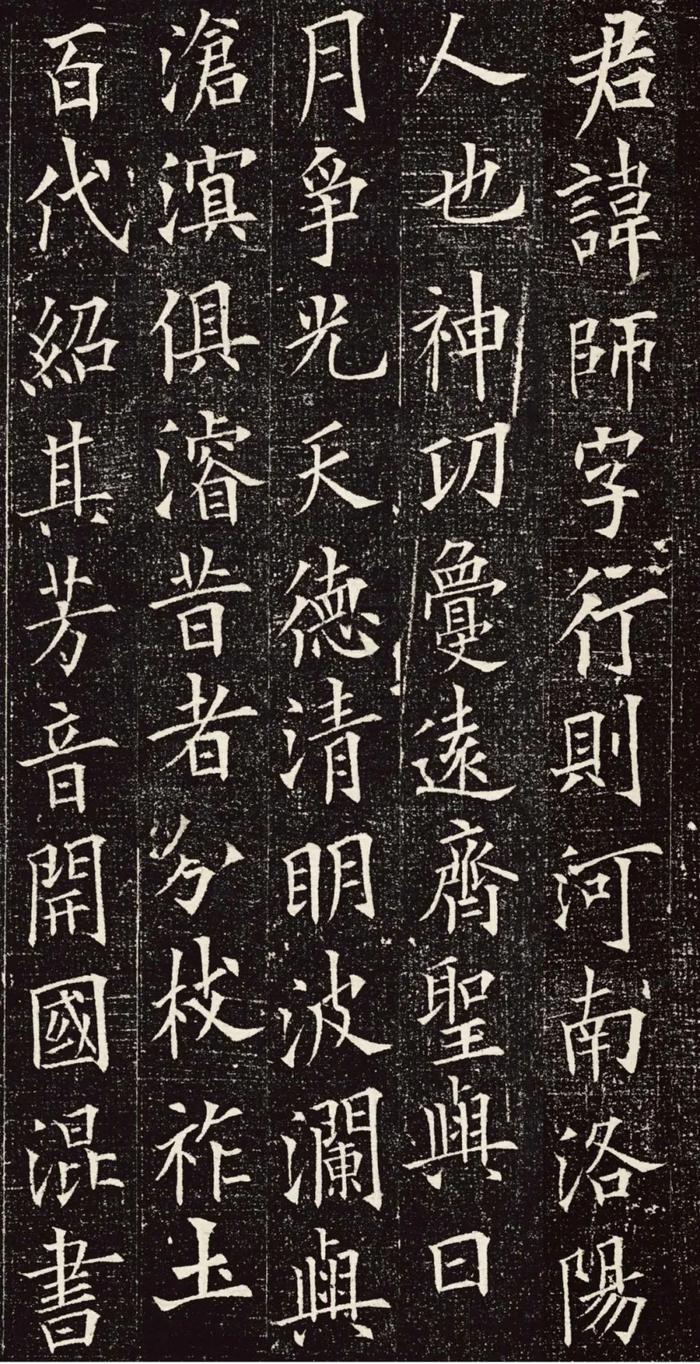 君諱師字行則河南洛陽
人也神功疊遠齊聖與日
月爭光天德清明波瀾與
滄溟俱濬昔者分枝祚土
百代紹其芳音開國混書